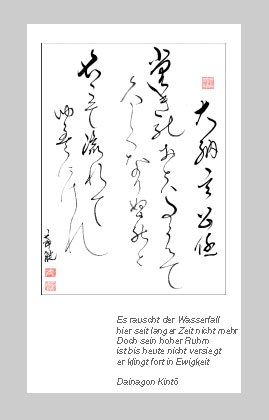 大納言公任
滝の おと はたえて
久しくなりぬれと
名こそ流れて
Es rauscht der Wasserfall
hier seit langer Zeit nicht mehr
Doch sein hoher Ruhm
ist bis heute nicht versiegt
er klingt fort in Ewigkeit
Dainagon Kintô